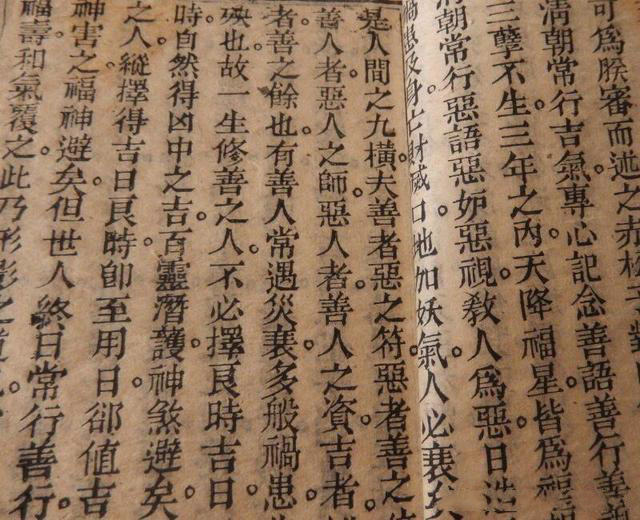 可爲朕審而述之赤松子對
清朝常行吉氣。專心記念善語善行善
三孽不生。三年之內。天降福星。皆爲福
清朝常行惡語惡妒惡視。教人爲惡。日
禍患及身亡財滅口地加妖氣。人必衰
是人間之九橫。夫善者惡之符。惡者善之
善人者。惡人之師。惡人者。善人之資。吉者
者。善之餘也。有善人常遇災衰多般禍患
殃也。故一生修善之人。不必擇良時吉日。
時自然得凶中之吉。百靈潛護。神煞避矣。
之人。縱擇得吉日良時。卽至用日。郤值吉
神害之。福神避矣。但世人終日常行善行。
福壽和氣覆之。此乃形影之道